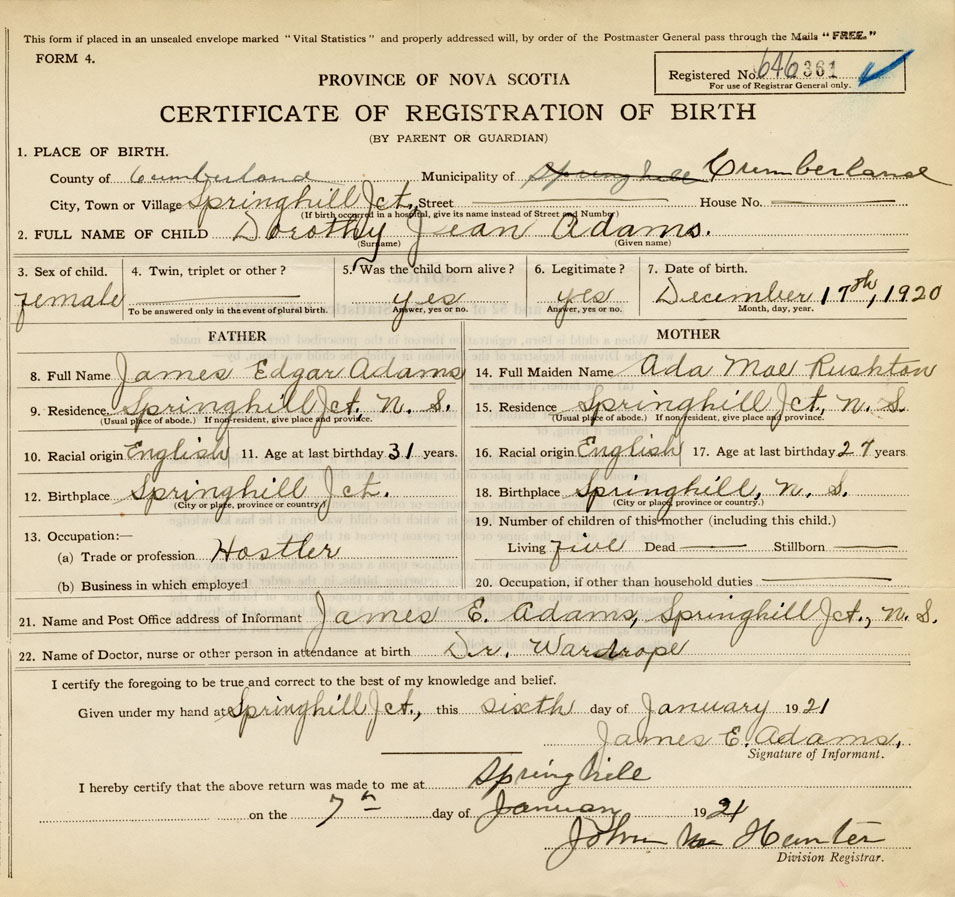 This form if placed in an unsealed envelope marked "Vital Statistics" and properly addressed will, by order of the Postmaster General pass through the Mails "FREE."
FORM 4.
Registered No. 646361
For use of Registrar General only.
PROVINCE OF NOVA SCOTIA
CERTIFICATE OF REGISTRATION OF BIRTH
(BY PARENT OR GUARDIAN)
1. PLACE OF BIRTH.
County of Cumberland Municipality of Springhill Cumberland
City, Town or Village Springhill Jct. Street House No.
(If birth occurred in a hospital, give its name instead of Street and Number)
2. FULL NAME OF CHILD Dorothy Jean Adams.
(Surname) (Given name)
3. Sex of child. 4. Twin, triplet or other? 5. Was the child born alive? 6. Legitimate? 7. Date of birth.
female yes yes December 17th, 1920
To be answered only in the event of plural birth. Answer, yes or no. Answer, yes or no. Month, day, year.
FATHER MOTHER
8. Full Name James Edgar Adams 14. Full Maiden Name Ada Mae Rushton
9. Residence. Springhill Jct, N. S. 15. Residence Springhill Jct, N. S.
(Usual place of abode.) If non-resident, give place and province. (Usual place of abode.) If non-resident, give place and province.
10. Racial origin English 11. Age at last birthday 31 years. 16. Racial origin English 17. Age at last birthday 27 years
12. Birthplace Springhill Jct. 18. Birthplace Springhill, N. S.
(City or place, province or country.) (City or place, province or country.)
13. Occupation:— 19. Number of children of this mother (including this child.)
(a) Trade or profession Hostler Living five Dead Stillborn
(b) Business in which employed 20. Occupation, if other than household duties
21. Name and Post Office address of Informant James E. Adams, Springhill Jct., N. S.
22. Name of Doctor, nurse or other person in attendance at birth Dr. Wardrope
I certify the foregoing to be true and correct to the best of my knowledge and belief.
Given under my hand at Springhill Jct., this sixth day of January 1921
James E. Adams,
Signature of Informant.
I hereby certify that the above return was made to me at Springhill
on the 7th day of January 1921
John Hunter
Division Registrar.